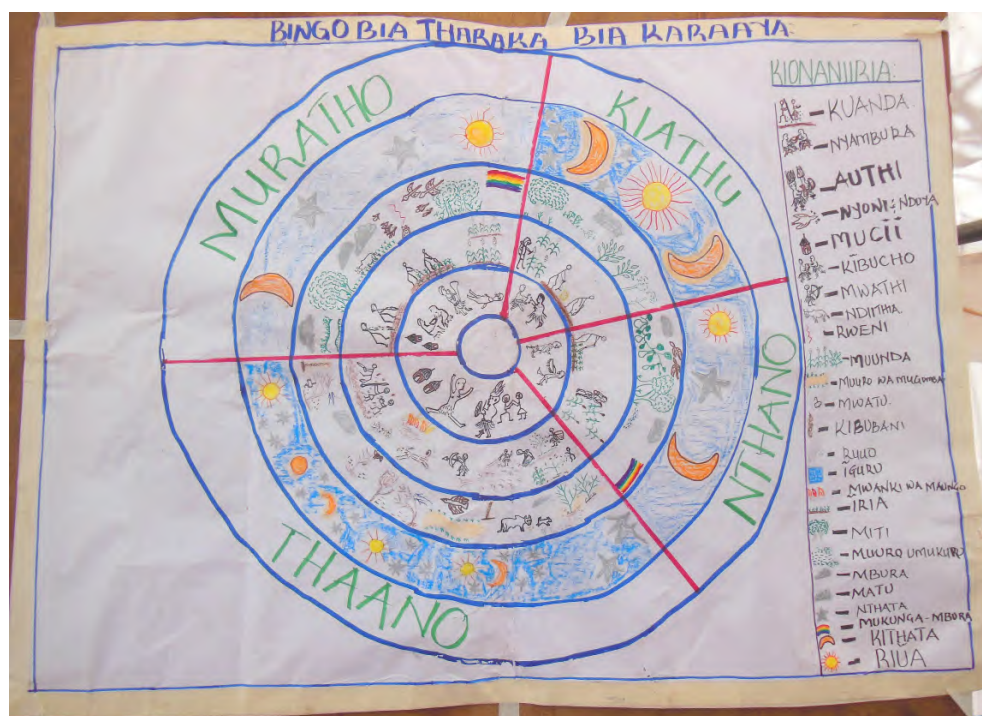 BINGO BIA THARAKA BIA KARAAYA
MURATHO
KIATHU
NTHANO
THAANO
KIONANIIRIA:
- KUANDA
- NYAMBURA
- AUTHI
- NYONI: NDUYA
- MUCII
- KĪBUCHO
- MWATHI
- NDITHA
- RWENI
- MUUNDA
- MUURO WA MUGUMBA
- MWATU
- KIBUBANI
- RUUO
- IGURU
- MWANKI WA MAUNGO
- IRIA
- MITI
- MUURO UMUKURU
- MBURA
- MATU
- NTHATA
- MUKUNGA-MBURA
- KITHATA
- RIUA